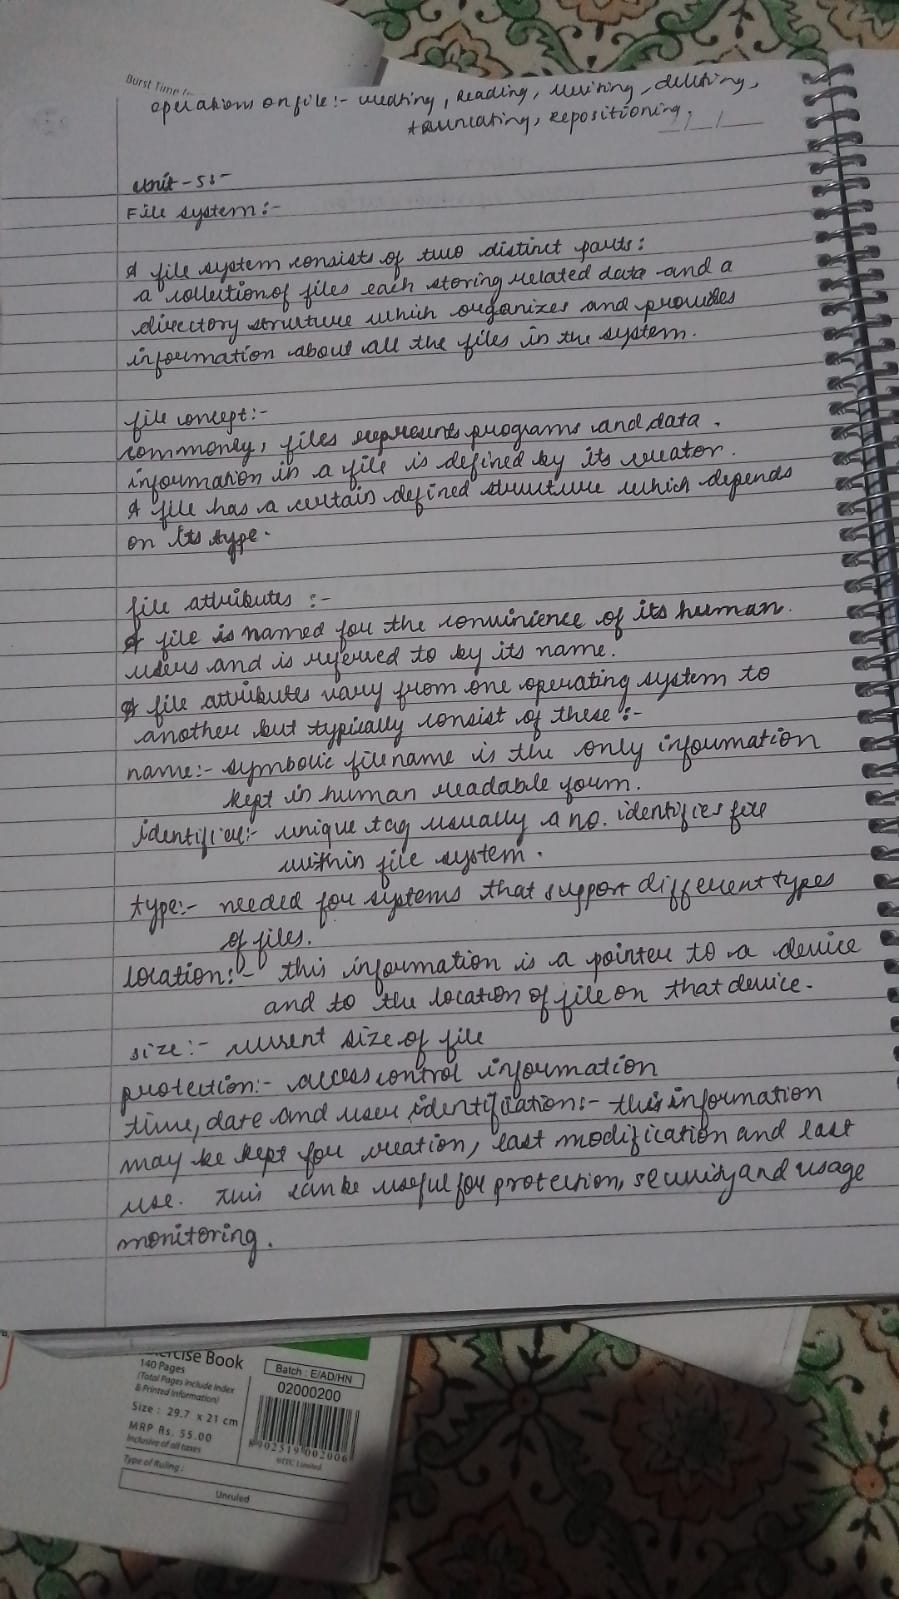 Burst Time
operations on file :- creating, reading, writing, deleting,
truncating, repositioning.
unit - 5 :-
File system :-
A file system consists of two distinct parts :
a collection of files each storing related data and a
directory structure which organizes and provides
information about all the files in the system.
file concept :-
commonly, files represents programs and data.
information in a file is defined by its creator.
A file has a certain defined structure which depends
on its type.
file attributes :-
A file is named for the convinience of its human
users and is referred to by its name.
A file attributes vary from one operating system to
another but typically consist of these :-
name :- symbolic filename is the only information
kept in human readable form.
identifier :- unique tag usually a no. identifies file
within file system.
type :- needed for systems that support different types
of files.
location :- this information is a pointer to a device
and to the location of file on that device.
size :- current size of file
protection :- access control information
time, date and user identification :- this information
may be kept for creation, last modification and last
use. This can be useful for protection, security and usage
monitoring.
Exercise Book
140 Pages
(Total Pages Include Index
& Printed Information)
Size : 29.7 x 21 cm
MRP Rs. 55.00
Inclusive of all taxes
Type of Ruling :
Unruled
Batch : E/AD/HN
02000200
8 902519 002006
©ITC Limited